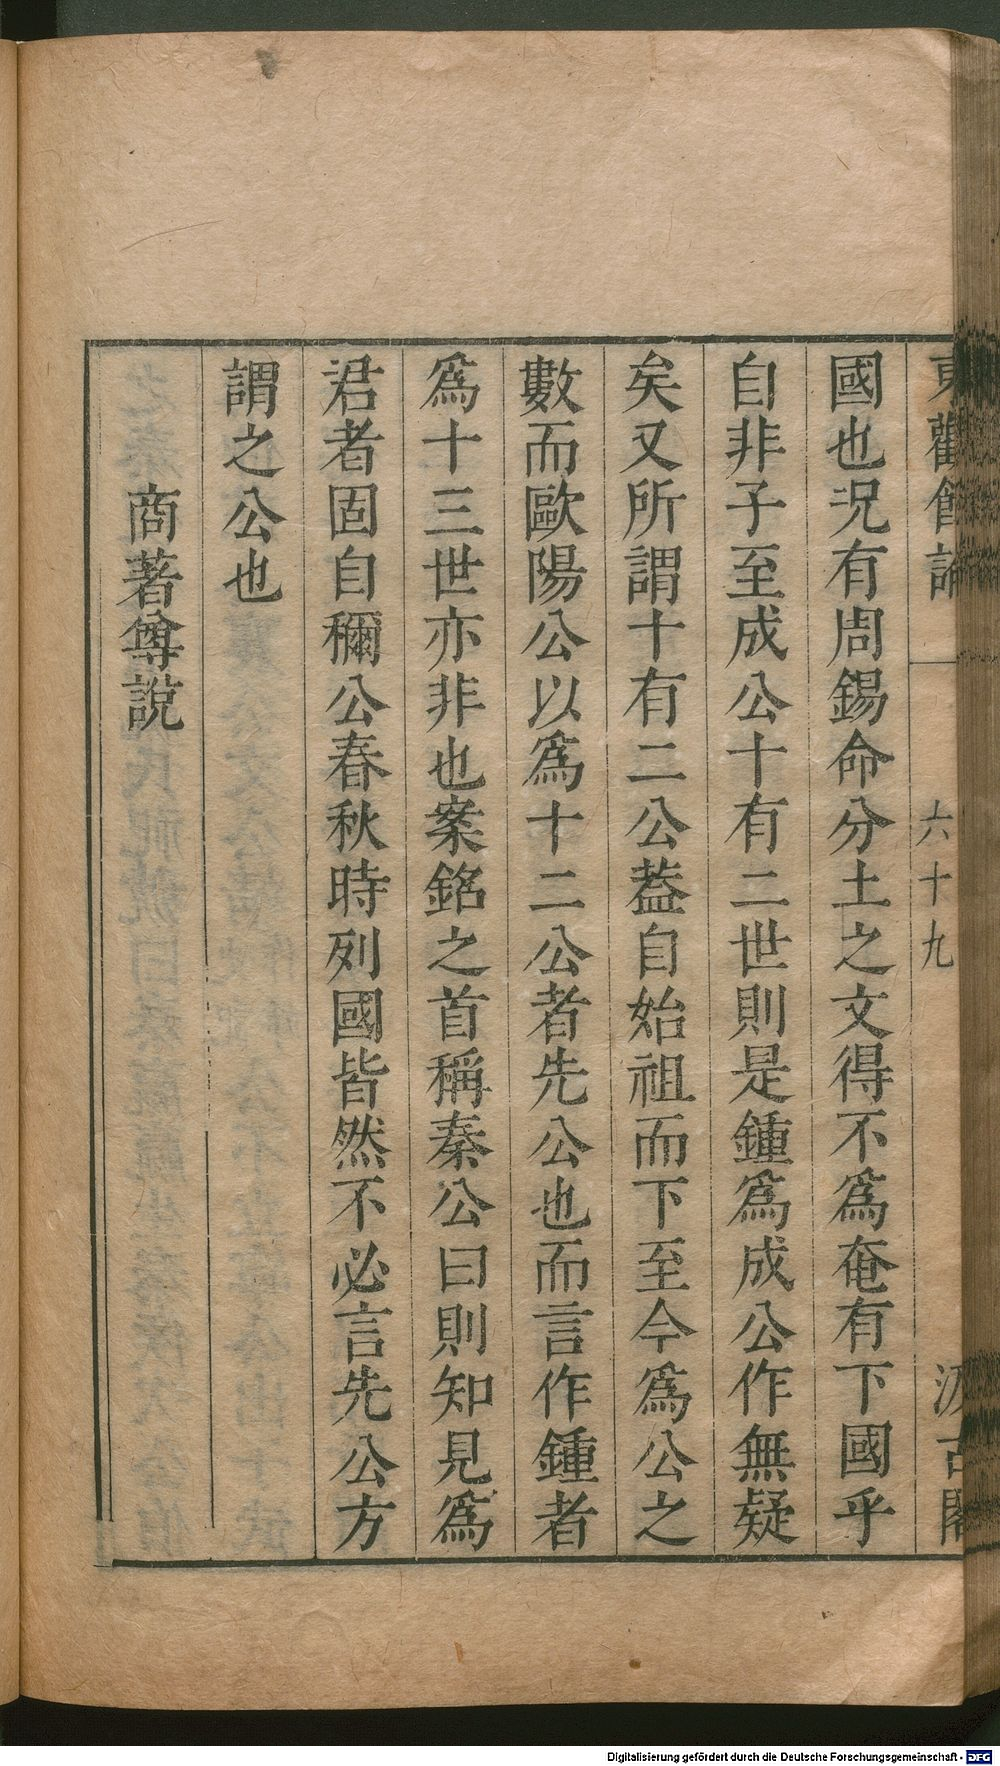 東觀餘論
六十九
汲古閣
國也況有周錫命分土之文得不爲奄有下國乎
自非子至成公十有二世則是鍾爲成公作無疑
矣又所謂十有二公葢自始祖而下至今爲公之
數而歐陽公以爲十二公者先公也而言作鍾者
爲十三世亦非也案銘之首稱秦公曰則知見爲
君者固自稱公春秋時列國皆然不必言先公方
謂之公也
商著尊說
Digitalisierung gefördert durch die Deutsche Forschungsgemeinschaft - DFG